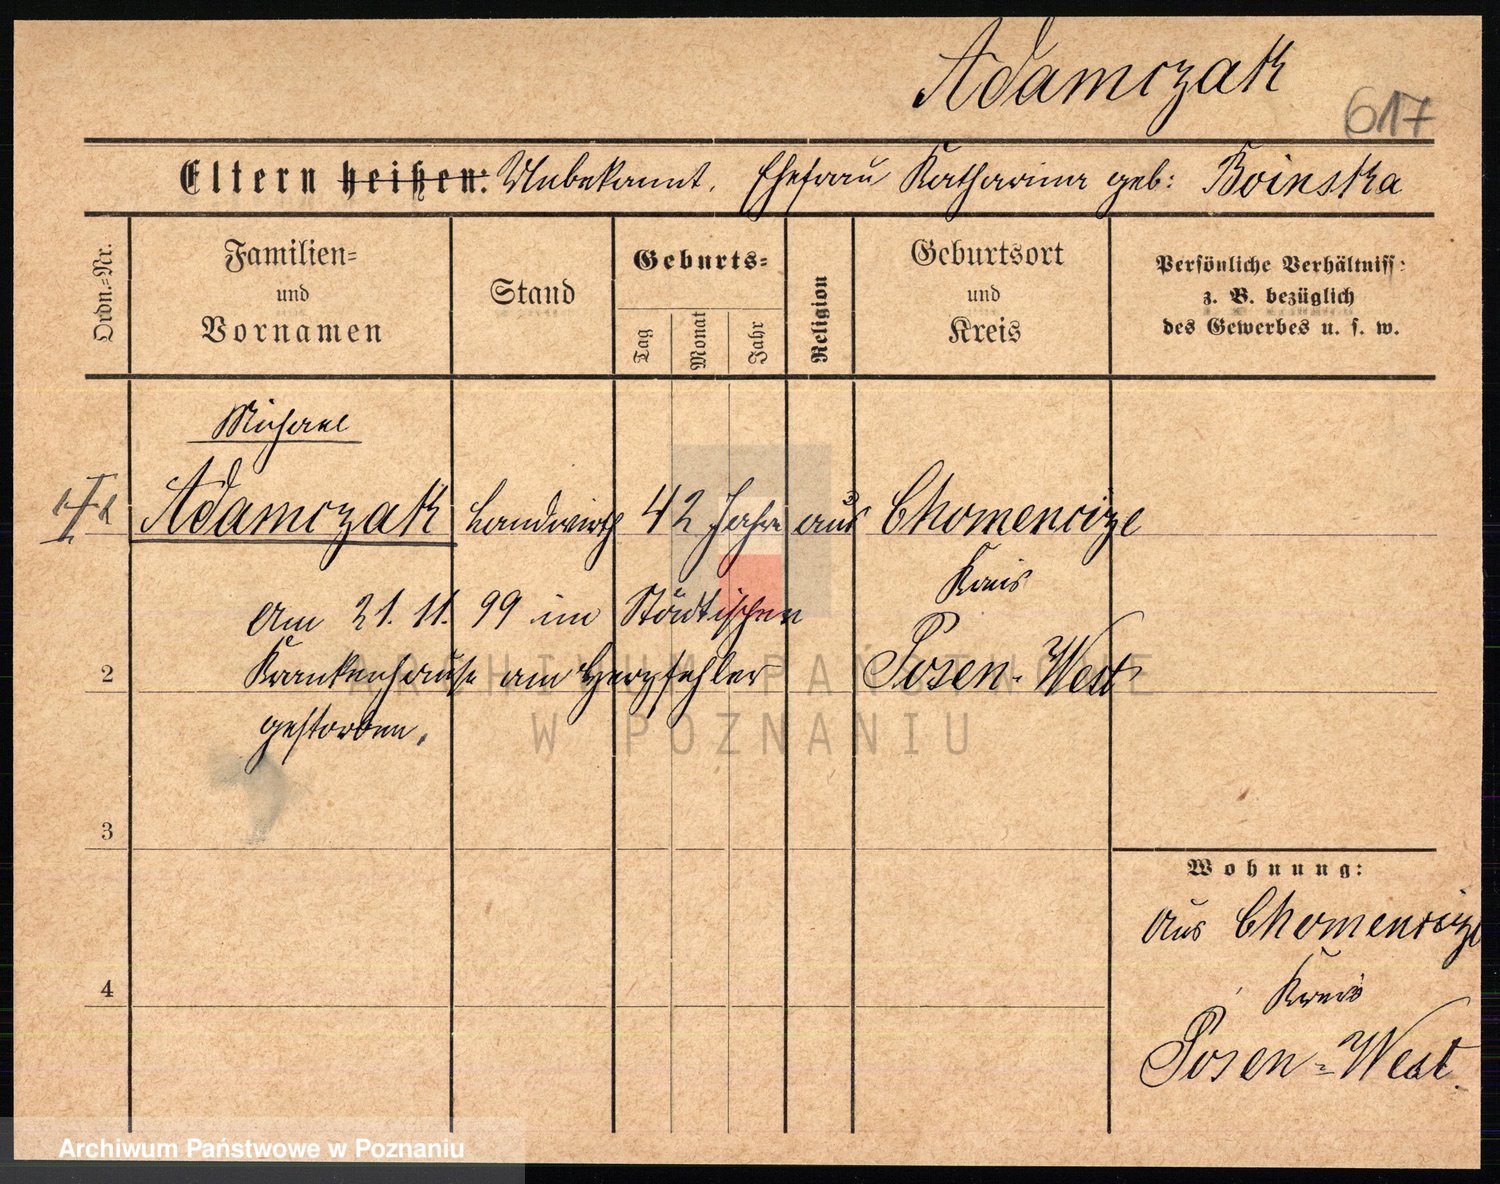 Adamczak
617
Eltern heißen: Unbekannt. Ehefrau Katharina geb: Boinska
Ordn.-Nr.
Familien-
und
Vornamen
Stand
Geburts-
Tag
Monat
Jahr
Religion
Geburtsort
und
Kreis
Persönliche Verhältniss:
z. B. bezüglich
des Gewerbes u. s. w.
Michael
Adamczak Landwirth 42 Jahre aus Chomencize
Kreis
Am 21. 11. 99 im Städtischen
Krankenhause am Herzfehler
gestorben.
Posen-West
2
3
4
Wohnung:
Aus Chomencize
Kreis
Posen-West.
ARCHIWUM PAŃSTWOWE
W POZNANIU
Archiwum Państwowe w Poznaniu